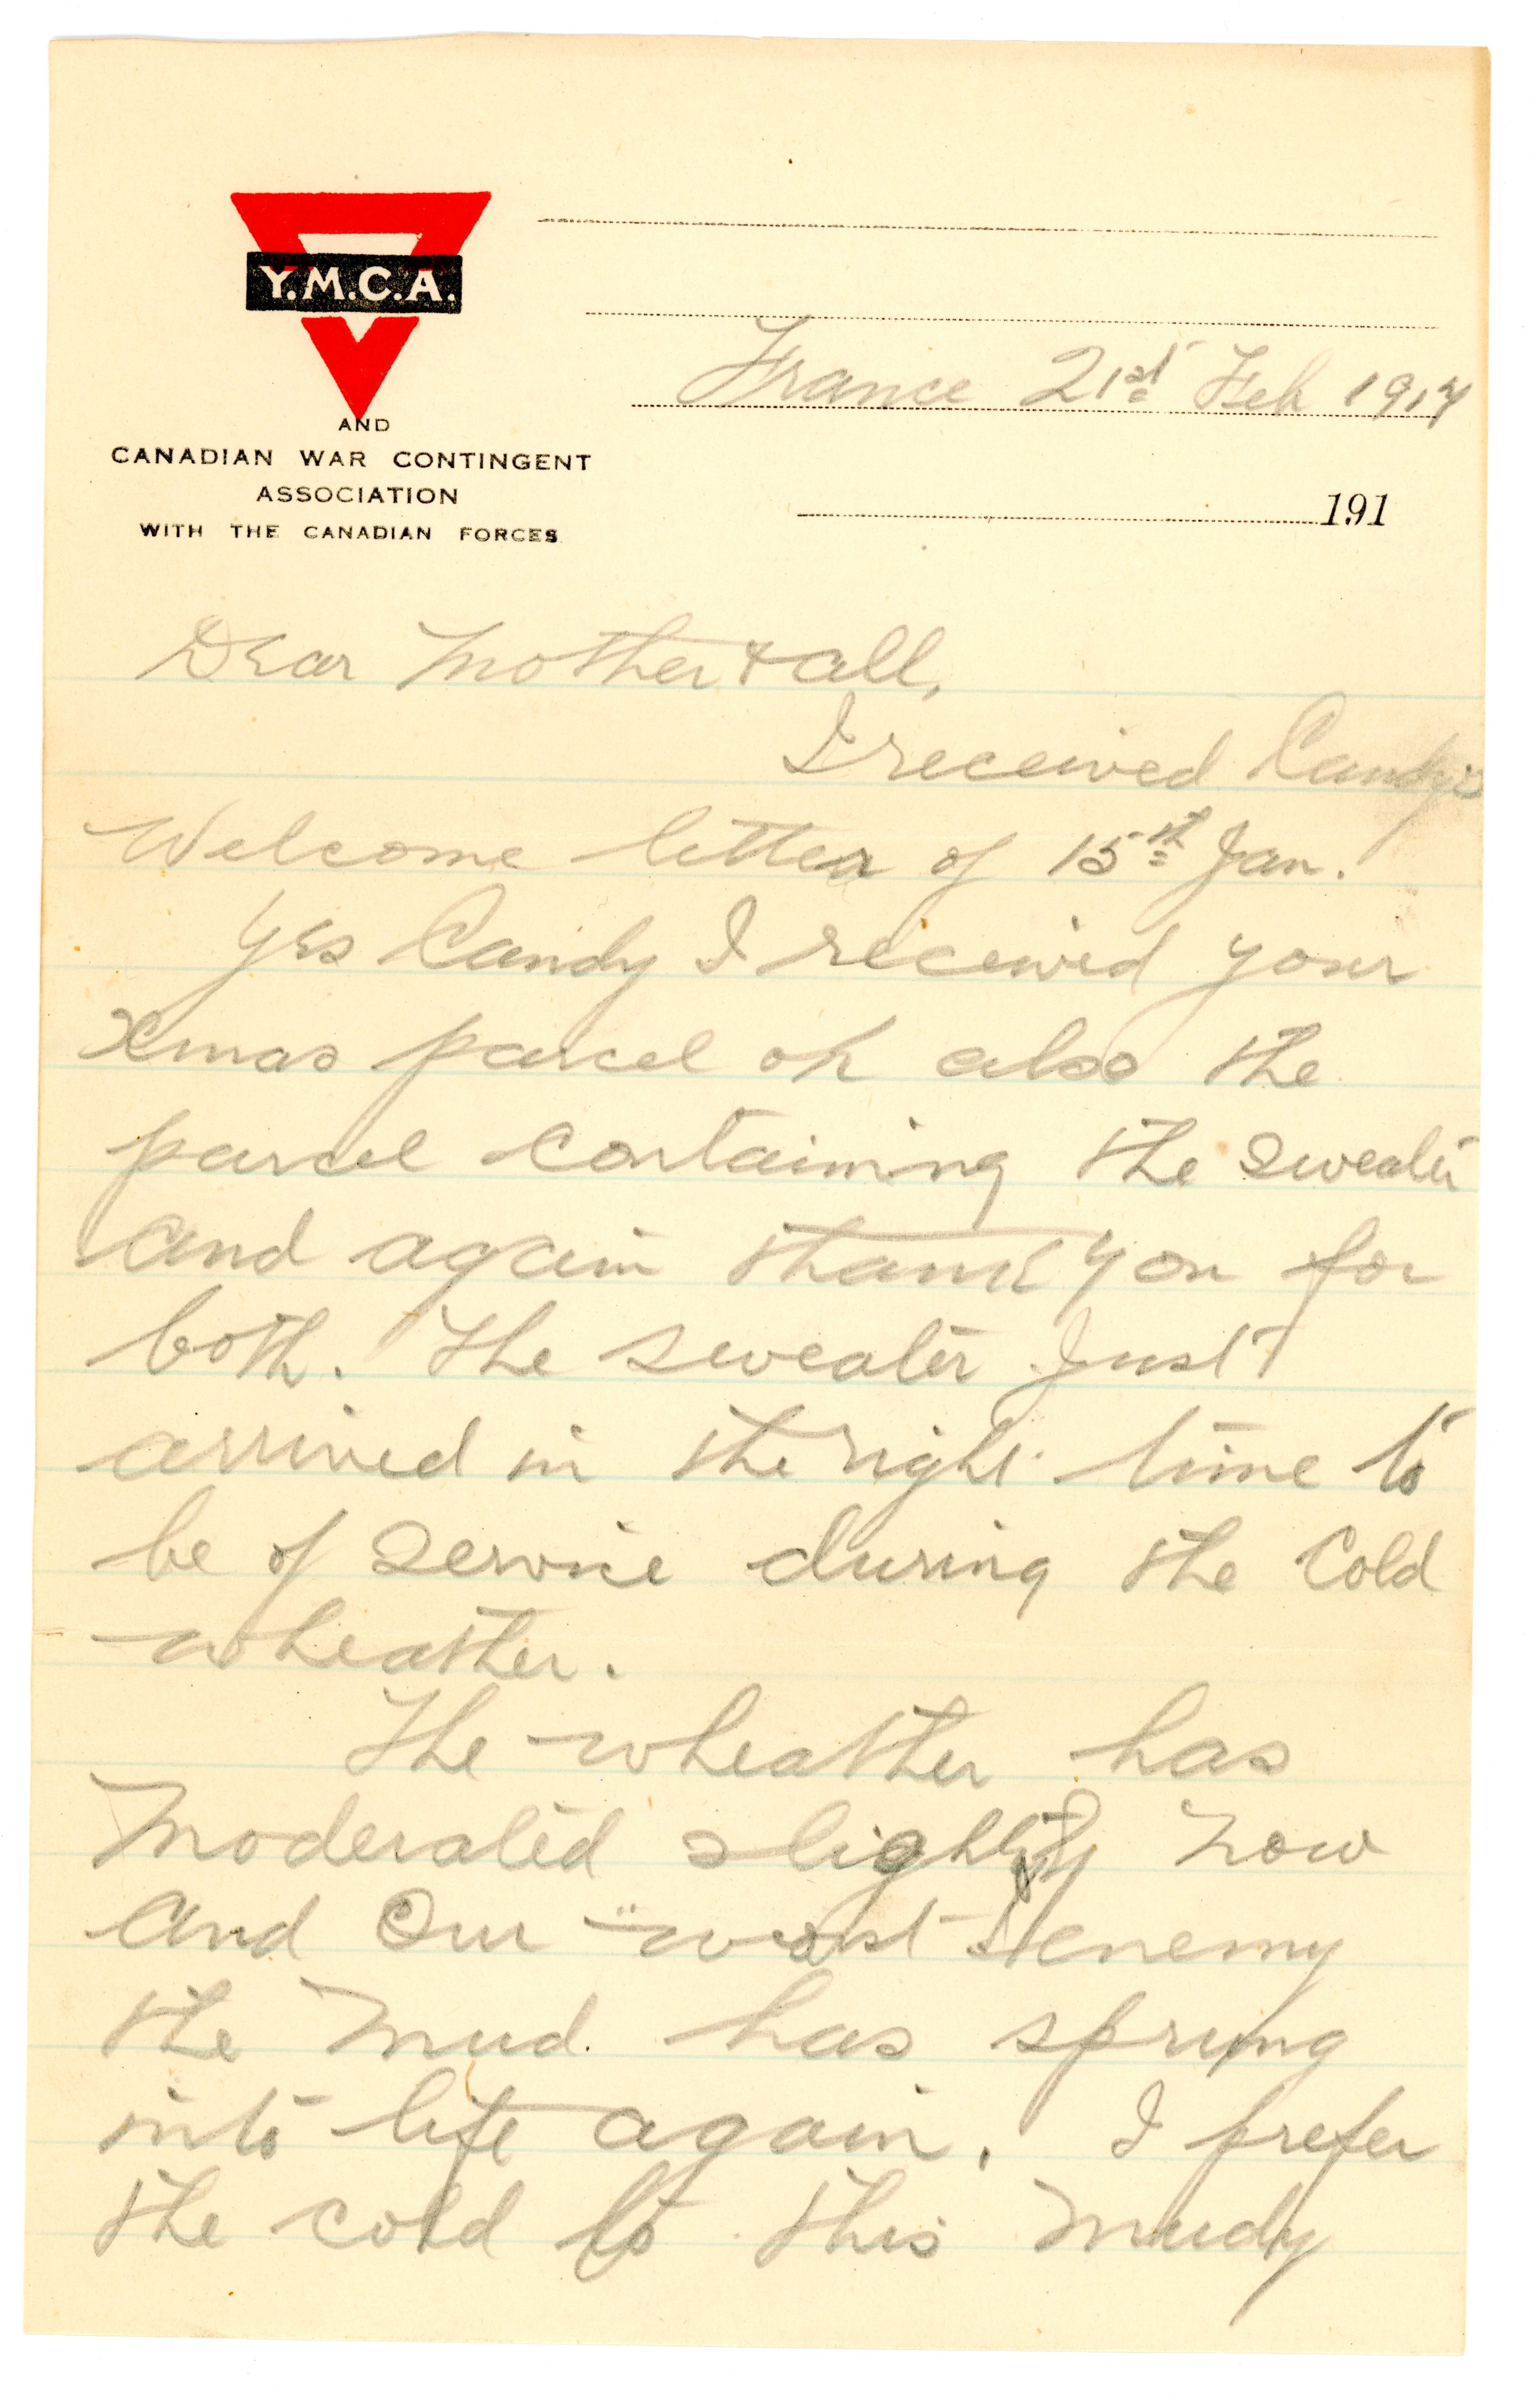 Y.M.C.A.
AND
CANADIAN WAR CONTINGENT
ASSOCIATION
WITH THE CANADIAN FORCES
France 21st Feb 1917
191
Dear Mother & all,
I received Candy's
Welcome letter of 15th Jan.
Yes Candy I received your
Xmas parcel ok also the
parcel containing the sweater
and again thank you for
both. The sweater Just
arrived in the right time to
be of service during the Cold
wheather.
The wheather has
moderated slightly now
and Our worst enemy
the mud. has sprung
into life again. I prefer
the cold to this mudy